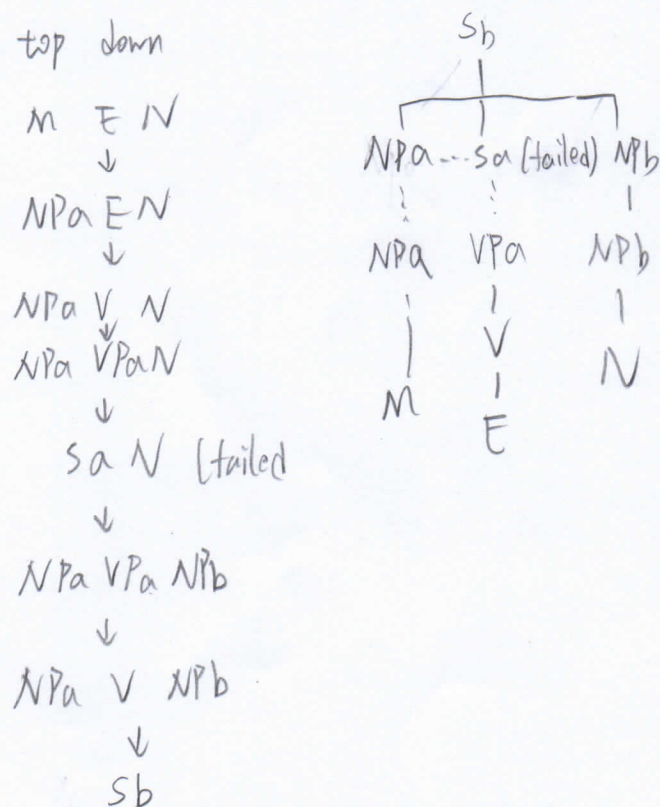 top down
M E N
↓
NPa E N
↓
NPa V N
↓
NPa VPa N
↓
Sa N (failed
↓
NPa VPa NPb
↓
NPa V NPb
↓
Sb
Sb
NPa Sa (failed) NPb
NPa VPa NPb
V
M E N